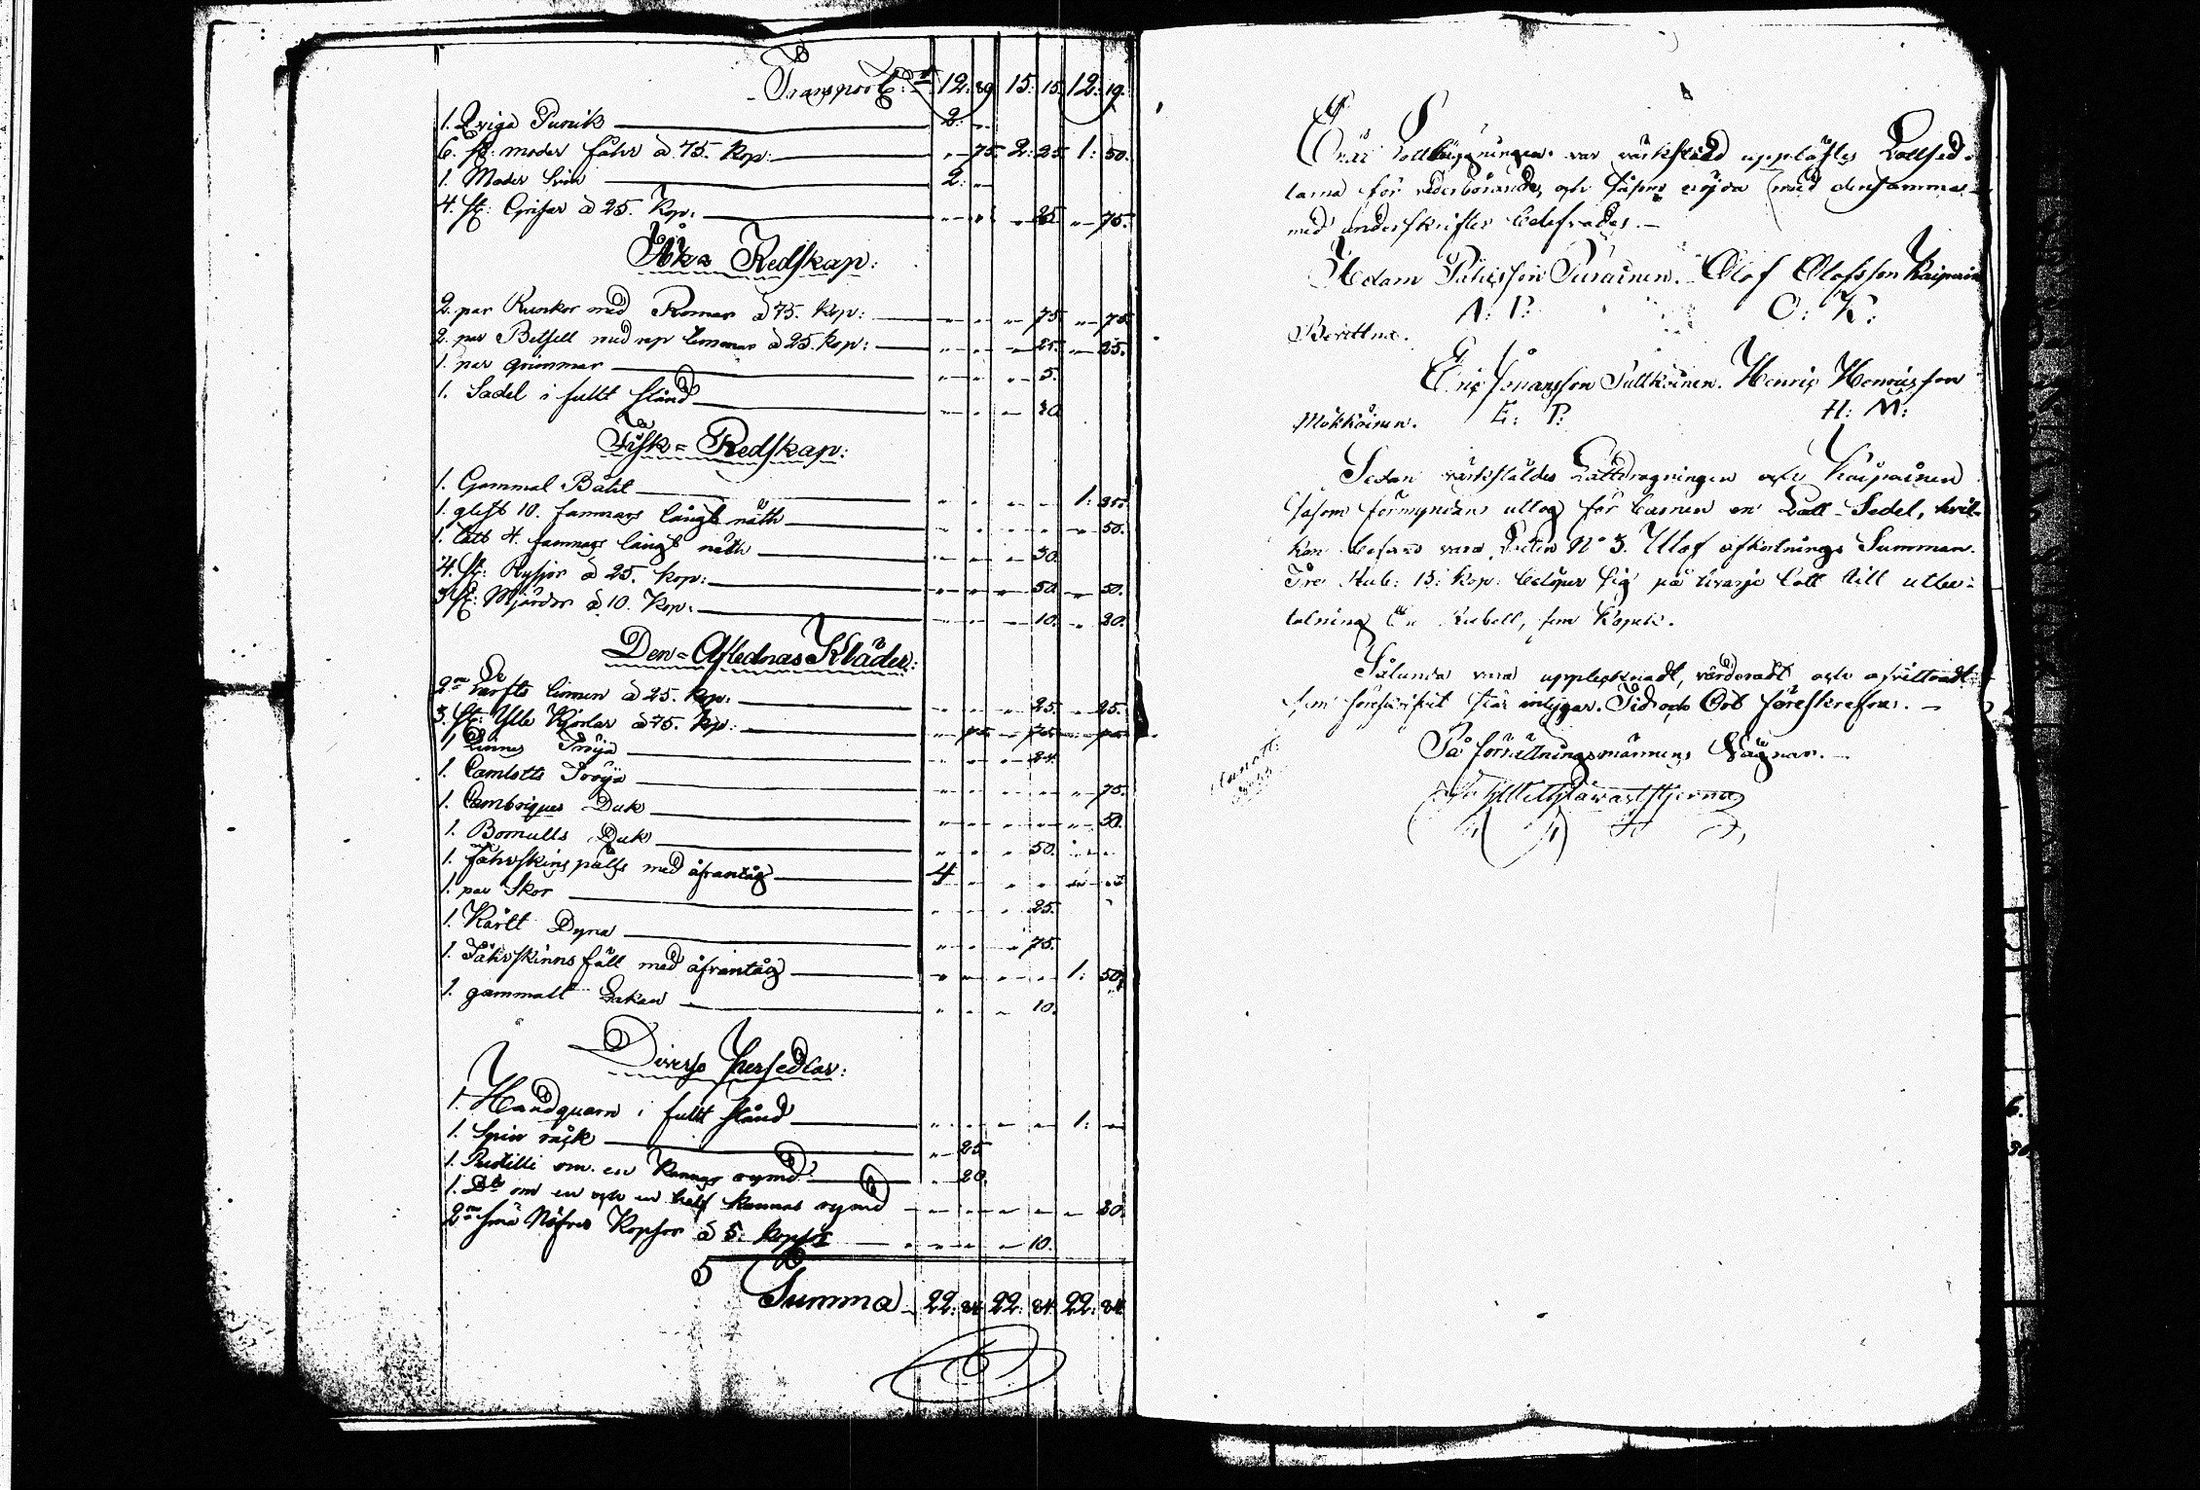 Transport: 12. 89 15. 15. 12. 19.
1. Qviga Punik 2. „
6. st: moder fåhr à 75. Kop: „ 75. 2. 25. 1: 50.
1. Moder Svin 2. „
4. st: Grisar à 25. Kop: „ „ „ 25. „ 75.
Åke Redskap:
2. par Runkor med Romar à 75. Kop: „ „ „ 75. „ 75.
2. par Betsell med rep tömmar à 25. Kop: „ „ „ 25. „ 25.
1. par grimmor „ „ „ 5.
1. Sadel i fullt stånd „ „ „ 30.
Fisk = Redskap:
1. Gammal Båht „ „ „ „ 1:
1. glest 10. famnars långt näth „ „ „ „ „ 50.
1. tätt 4. famnars långt näth „ „ „ 30.
4. st: Rysjor à 25. Kop: „ „ „ 50. „ 50.
3 st: Mjärdor à 10. Kop: „ „ „ 10. „ 20.
Den = Aflednas Kläder:
2ne Lärfts linnen à 25. Kop: „ „ „ 25. „ 25.
3. st: Ylle Kjortlar à 75. Kop: „ 75. „ 75. „ 75.
1 Linnes Tröja „ „ „ 24.
1. Camlotts Tröja „ „ „ „ „ 75.
1. Cambriques Duk „ „ „ „ „ 50.
1. Bomulls Duk „ „ „ 50. „ „
1. fåhrskins pälts med åfvantåg 4 „ „ „ „ „
1. par Skor „ „ „ 25.
1. Kårtt Dyna „ „ „ 75.
1. Fåhrskinns fäll med åfvantåg „ „ „ „ 1: 50.
1. gammalt Lakan „ „ „ 10.
Diverse Persedlar:
1. Handquarn i fullt stånd „ „ „ „ 1: „
1. Spin råck „ 25
1. Putilli om en Kannas rymd „ 20.
1. Do om en och en half Kannas rymd „ „ „ „ „ 30.
2ne små Näfver Kopsor à 5. Kop: „ „ „ 10.
Summa 22: 84 22: 84. 22: 84.
Enär Lottläggningen var värkstäld upplästes Lottsed-
larna för vederbörande, och såsom nöjda med densamma
med underskrifter bekräftades. —
Adam Påhlsson Purainen. Olof Olofsson Kaipainen
A: P: O: K:
Berättna.
Eric Johansson Pulkoinen. Henric Henricsson
Mökköinen. E: P: H: M:
Sedan värkstäldes Lottdragningen och Kaipainen
såsom förmyndare uttog för barnen en Lott-Sedel, hvil-
ken befans vara Lotten No 3. Utaf afkortnings Summan
Tre Rub: 15: Kop: belöper sig på hvarje Lott till utbe-
talning En Rubell, fem Kopek.
Sålunda vara upptecknadt, värderadt och afvittradt
som förefunnit här intygar. Tid och Ort föreskrefne. —
På förrättningsmännens Vägnar. —